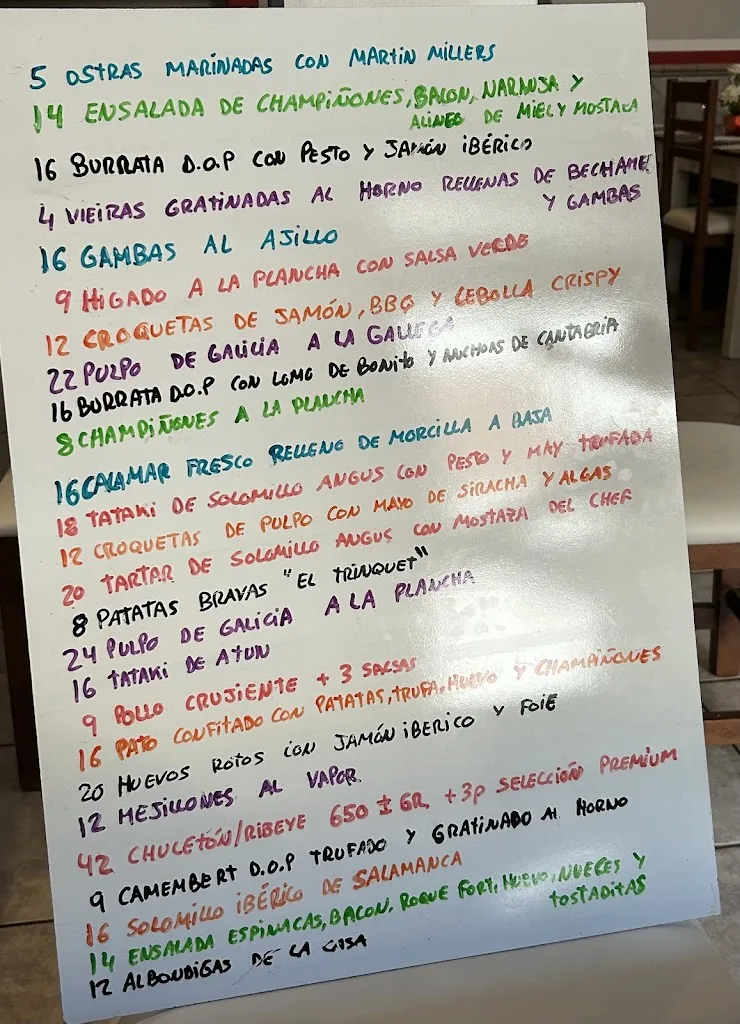 5 OSTRAS MARINADAS CON MARTIN MILLERS
14 ENSALADA DE CHAMPIÑONES, BACON, NARANJA Y
ALINEO DE MIEL Y MOSTAZA
16 BURRATA D.O.P CON PESTO Y JAMÓN IBÉRICO
4 VIEIRAS GRATINADAS AL HORNO RELLENAS DE BECHAMEL
Y GAMBAS
16 GAMBAS AL AJILLO
9 HIGADO A LA PLANCHA CON SALSA VERDE
12 CROQUETAS DE JAMÓN, BBQ Y CEBOLLA CRISPY
22 PULPO DE GALICIA A LA GALLEGA
16 BURRATA D.O.P CON LOMO DE BONITO Y ANCHOAS DE CANTABRIA
8 CHAMPIÑONES A LA PLANCHA
16 CALAMAR FRESCO RELLENO DE MORCILLA A BAJA
18 TATAKI DE SOLOMILLO ANGUS CON PESTO Y MAY TRUFADA
12 CROQUETAS DE PULPO CON MAYO DE SIRACHA Y ALGAS
20 TARTAR DE SOLOMILLO ANGUS CON MOSTAZA DEL CHEF
8 PATATAS BRAVAS "EL TRINQUET"
24 PULPO DE GALICIA A LA PLANCHA
16 TATAKI DE ATUN
9 POLLO CRUJIENTE + 3 SALSAS
16 PATO CONFITADO CON PATATAS, TRUFA, HUEVO Y CHAMPIÑONES
20 HUEVOS ROTOS CON JAMÓN IBERICO Y FOIE
12 MEJILLONES AL VAPOR
42 CHULETÓN/RIBEYE 650 ± GR. +3P SELECCIÓN PREMIUM
9 CAMEMBERT D.O.P TRUFADO Y GRATINADO AL HORNO
16 SOLOMILLO IBÉRICO DE SALAMANCA
14 ENSALADA ESPINACAS, BACON, ROQUE FORT, HUEVO, NUECES Y
TOSTADITAS
12 ALBONDIGAS DE LA CASA